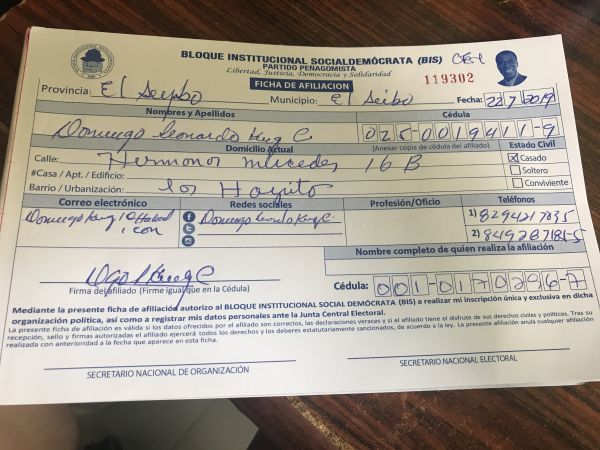 BLOQUE INSTITUCIONAL SOCIALDEMÓCRATA (BIS)
PARTIDO PEÑAGOMISTA
Libertad, Justicia, Democracia y Solidaridad
119302
FICHA DE AFILIACION
Provincia: El Seybo Municipio: El Seibo Fecha: 22/7/2019
Nombres y Apellidos Cédula
Domingo Leonardo King C 025-0019411-9
Domicilio Actual (Anexar copia de cédula del afiliado) Estado Civil
Calle: Hermanos Mercedes 16 B
#Casa / Apt. / Edificio:
Barrio / Urbanización: los Hoyito
☒ Casado
Soltero
Conviviente
Correo electrónico Redes sociales Profesión/Oficio Teléfonos
.com
1) 8294217035
2)
Nombre completo de quien realiza la afiliación
Cédula: 001-0170296-7
Firma del afiliado (Firme igual que en la Cédula)
Mediante la presente ficha de afiliación autorizo al BLOQUE INSTITUCIONAL SOCIAL DEMÓCRATA (BIS) a realizar mi inscripción única y exclusiva en dicha
organización política, así como a registrar mis datos personales ante la Junta Central Electoral.
La presente ficha de afiliación es válida si los datos ofrecidos por el afiliado son correctos, las declaraciones veraces y si el afiliado tiene el disfrute de sus derechos civiles y políticos. Tras su
recepción, sello y firmas autorizadas el afiliado ejercerá todos los derechos y los deberes estatutariamente sancionados, de acuerdo a la ley. La presente afiliación anula cualquier afiliación
realizada con anterioridad a la fecha que aparece en esta ficha.
SECRETARIO NACIONAL DE ORGANIZACIÓN
SECRETARIO NACIONAL ELECTORAL